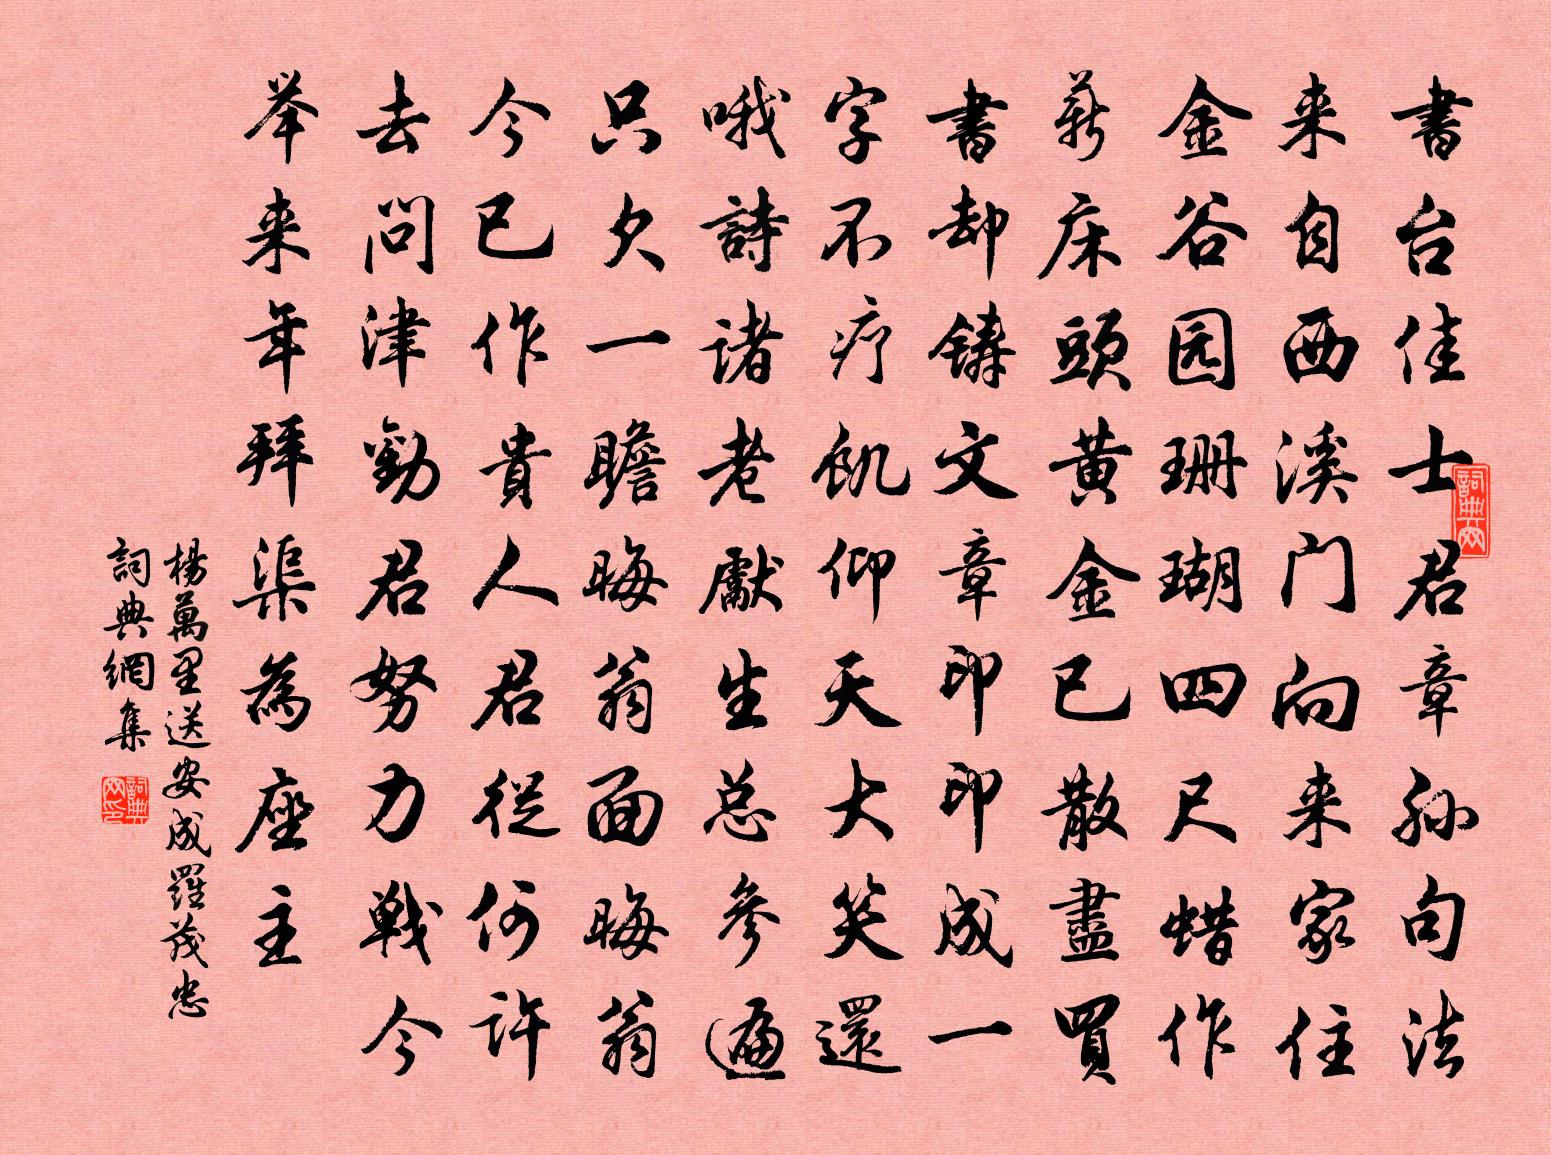 書台佳士君章孙句法
来自西溪门向来家住
金谷园珊瑚四尺蜡作
薪床頭黄金已散盡買
書却鋳文章印印成一
字不疗飢仰天大笑還
哦詩诸老獻生总參遍
只欠一瞻晦翁面晦翁
今已作貴人君従何許
去問津勧君努力戦今
举来年拜渠為座主
楊萬里送安成羅茂忠
詞典網集
詞典网
詞典网印